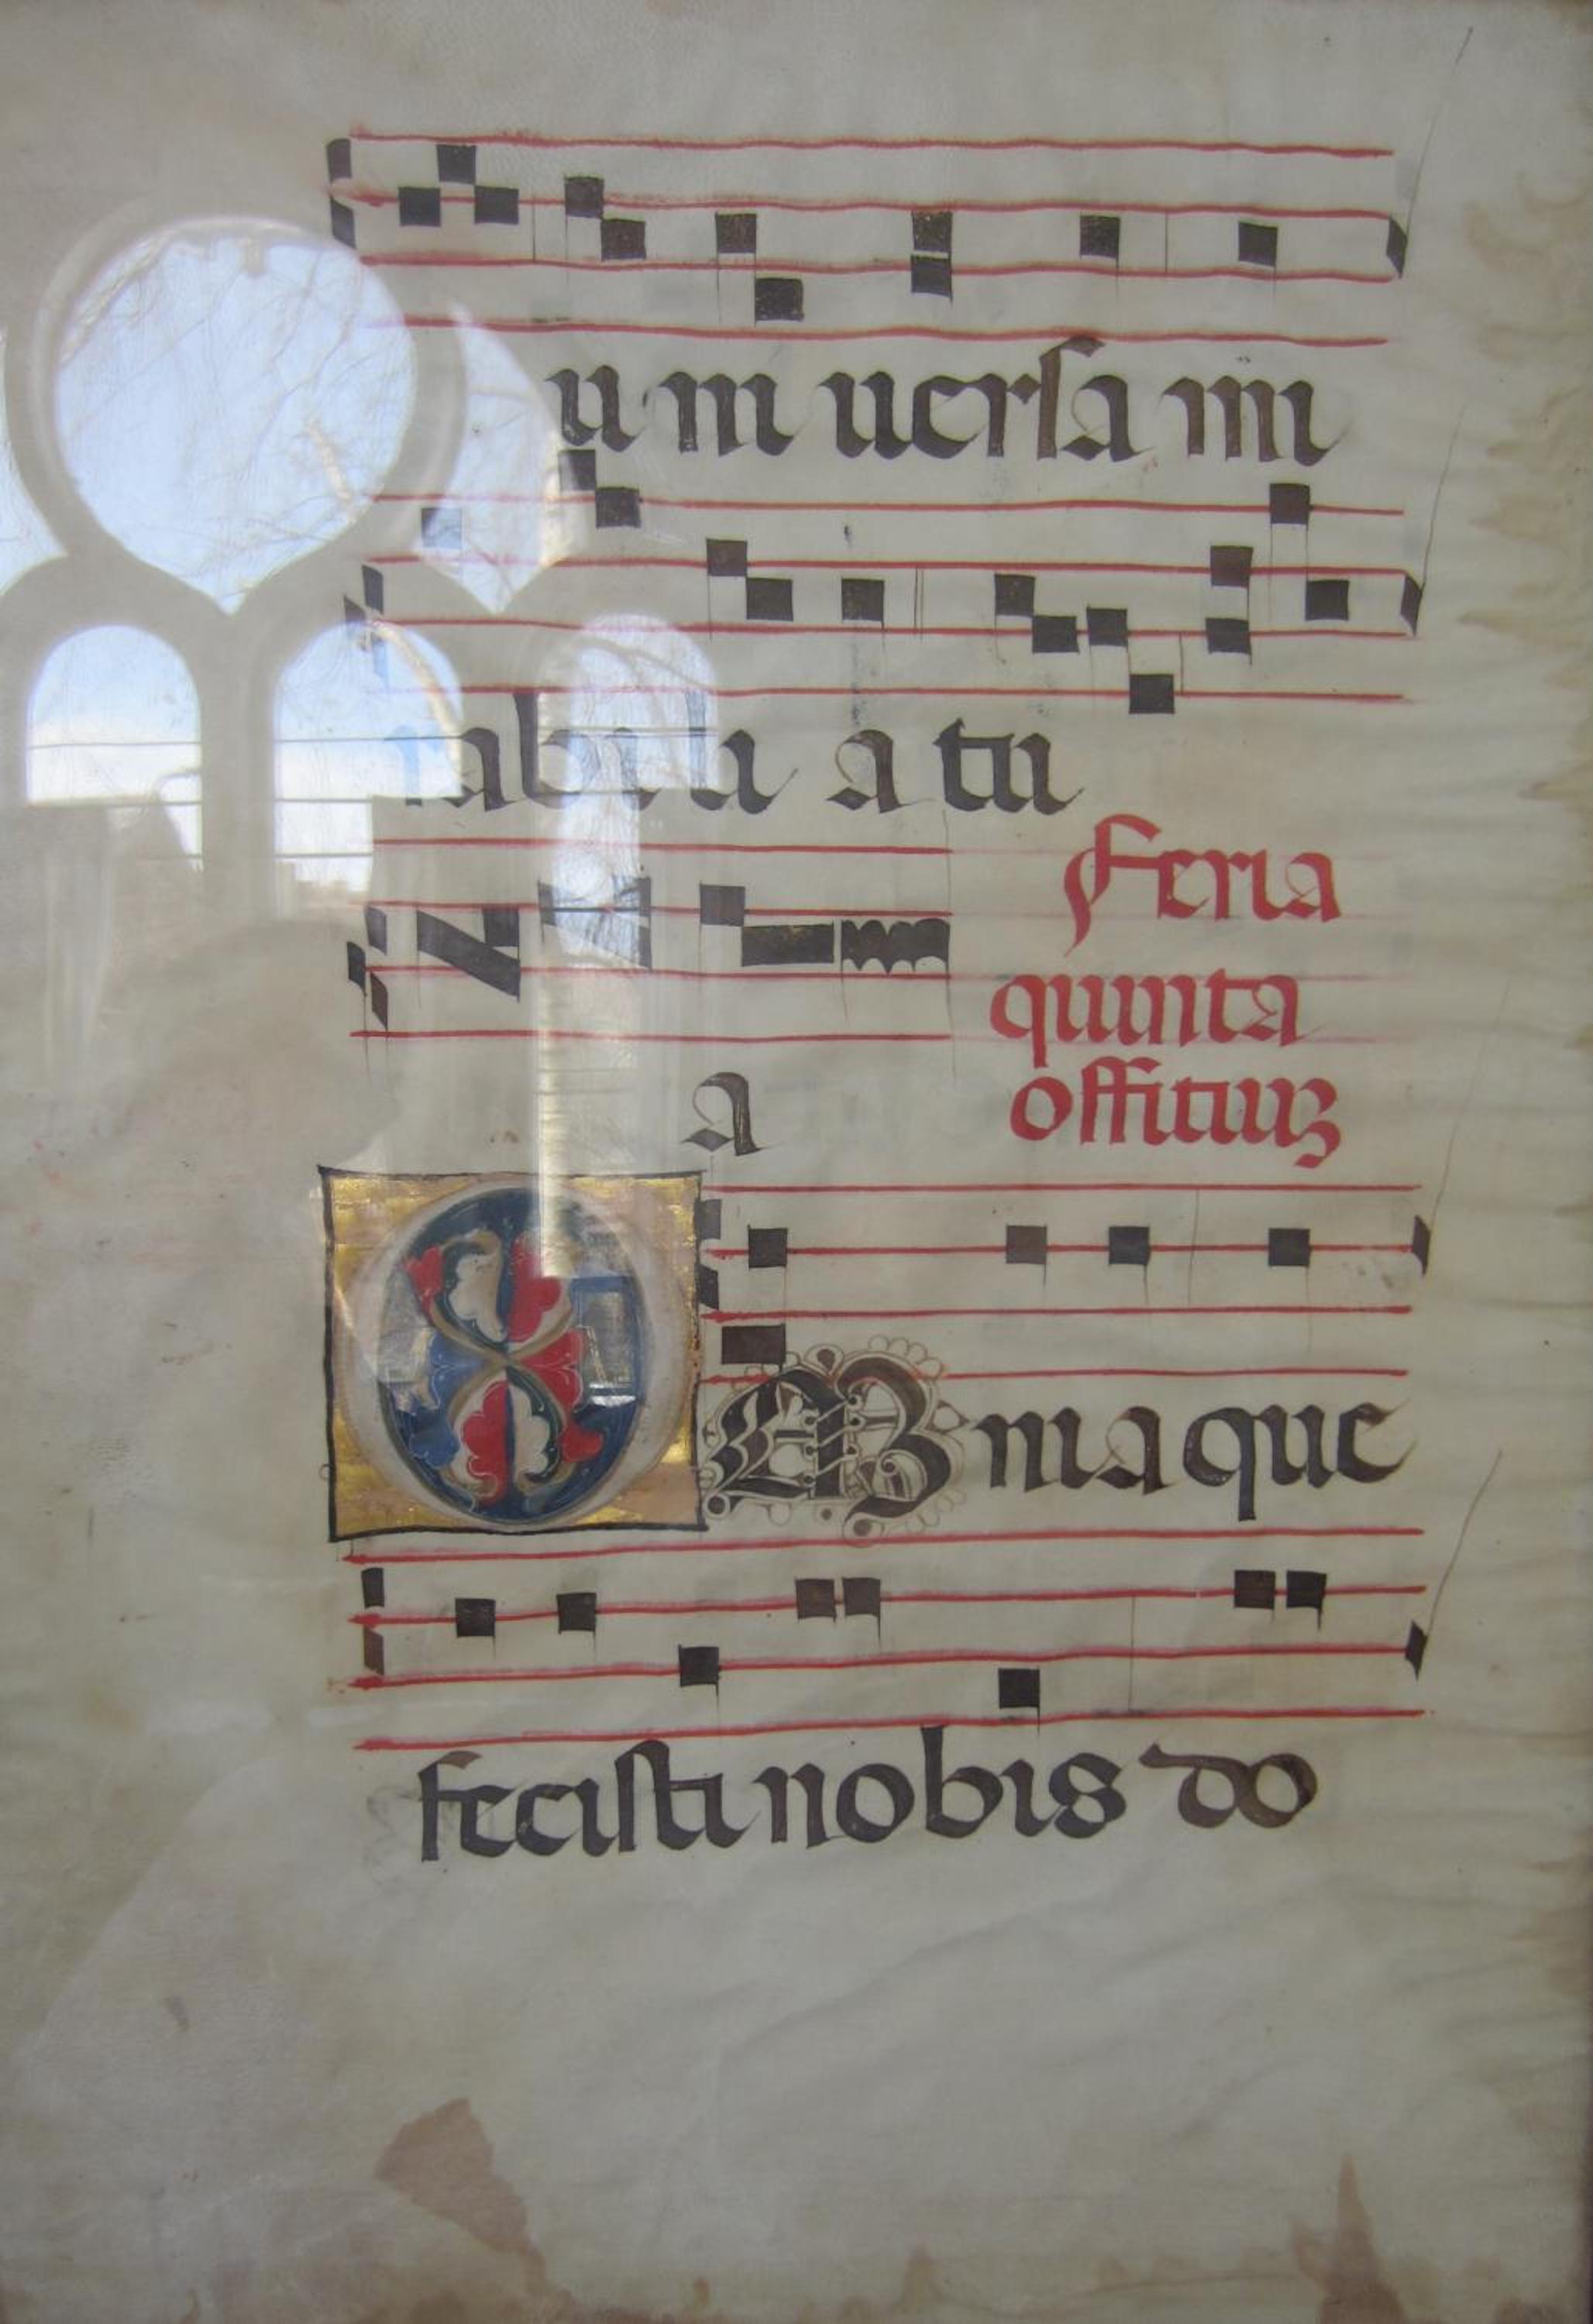 um uersa mi
rabili a tu
Feria
a
quinta
offitiuz
OMnia que
fecisti nobis do